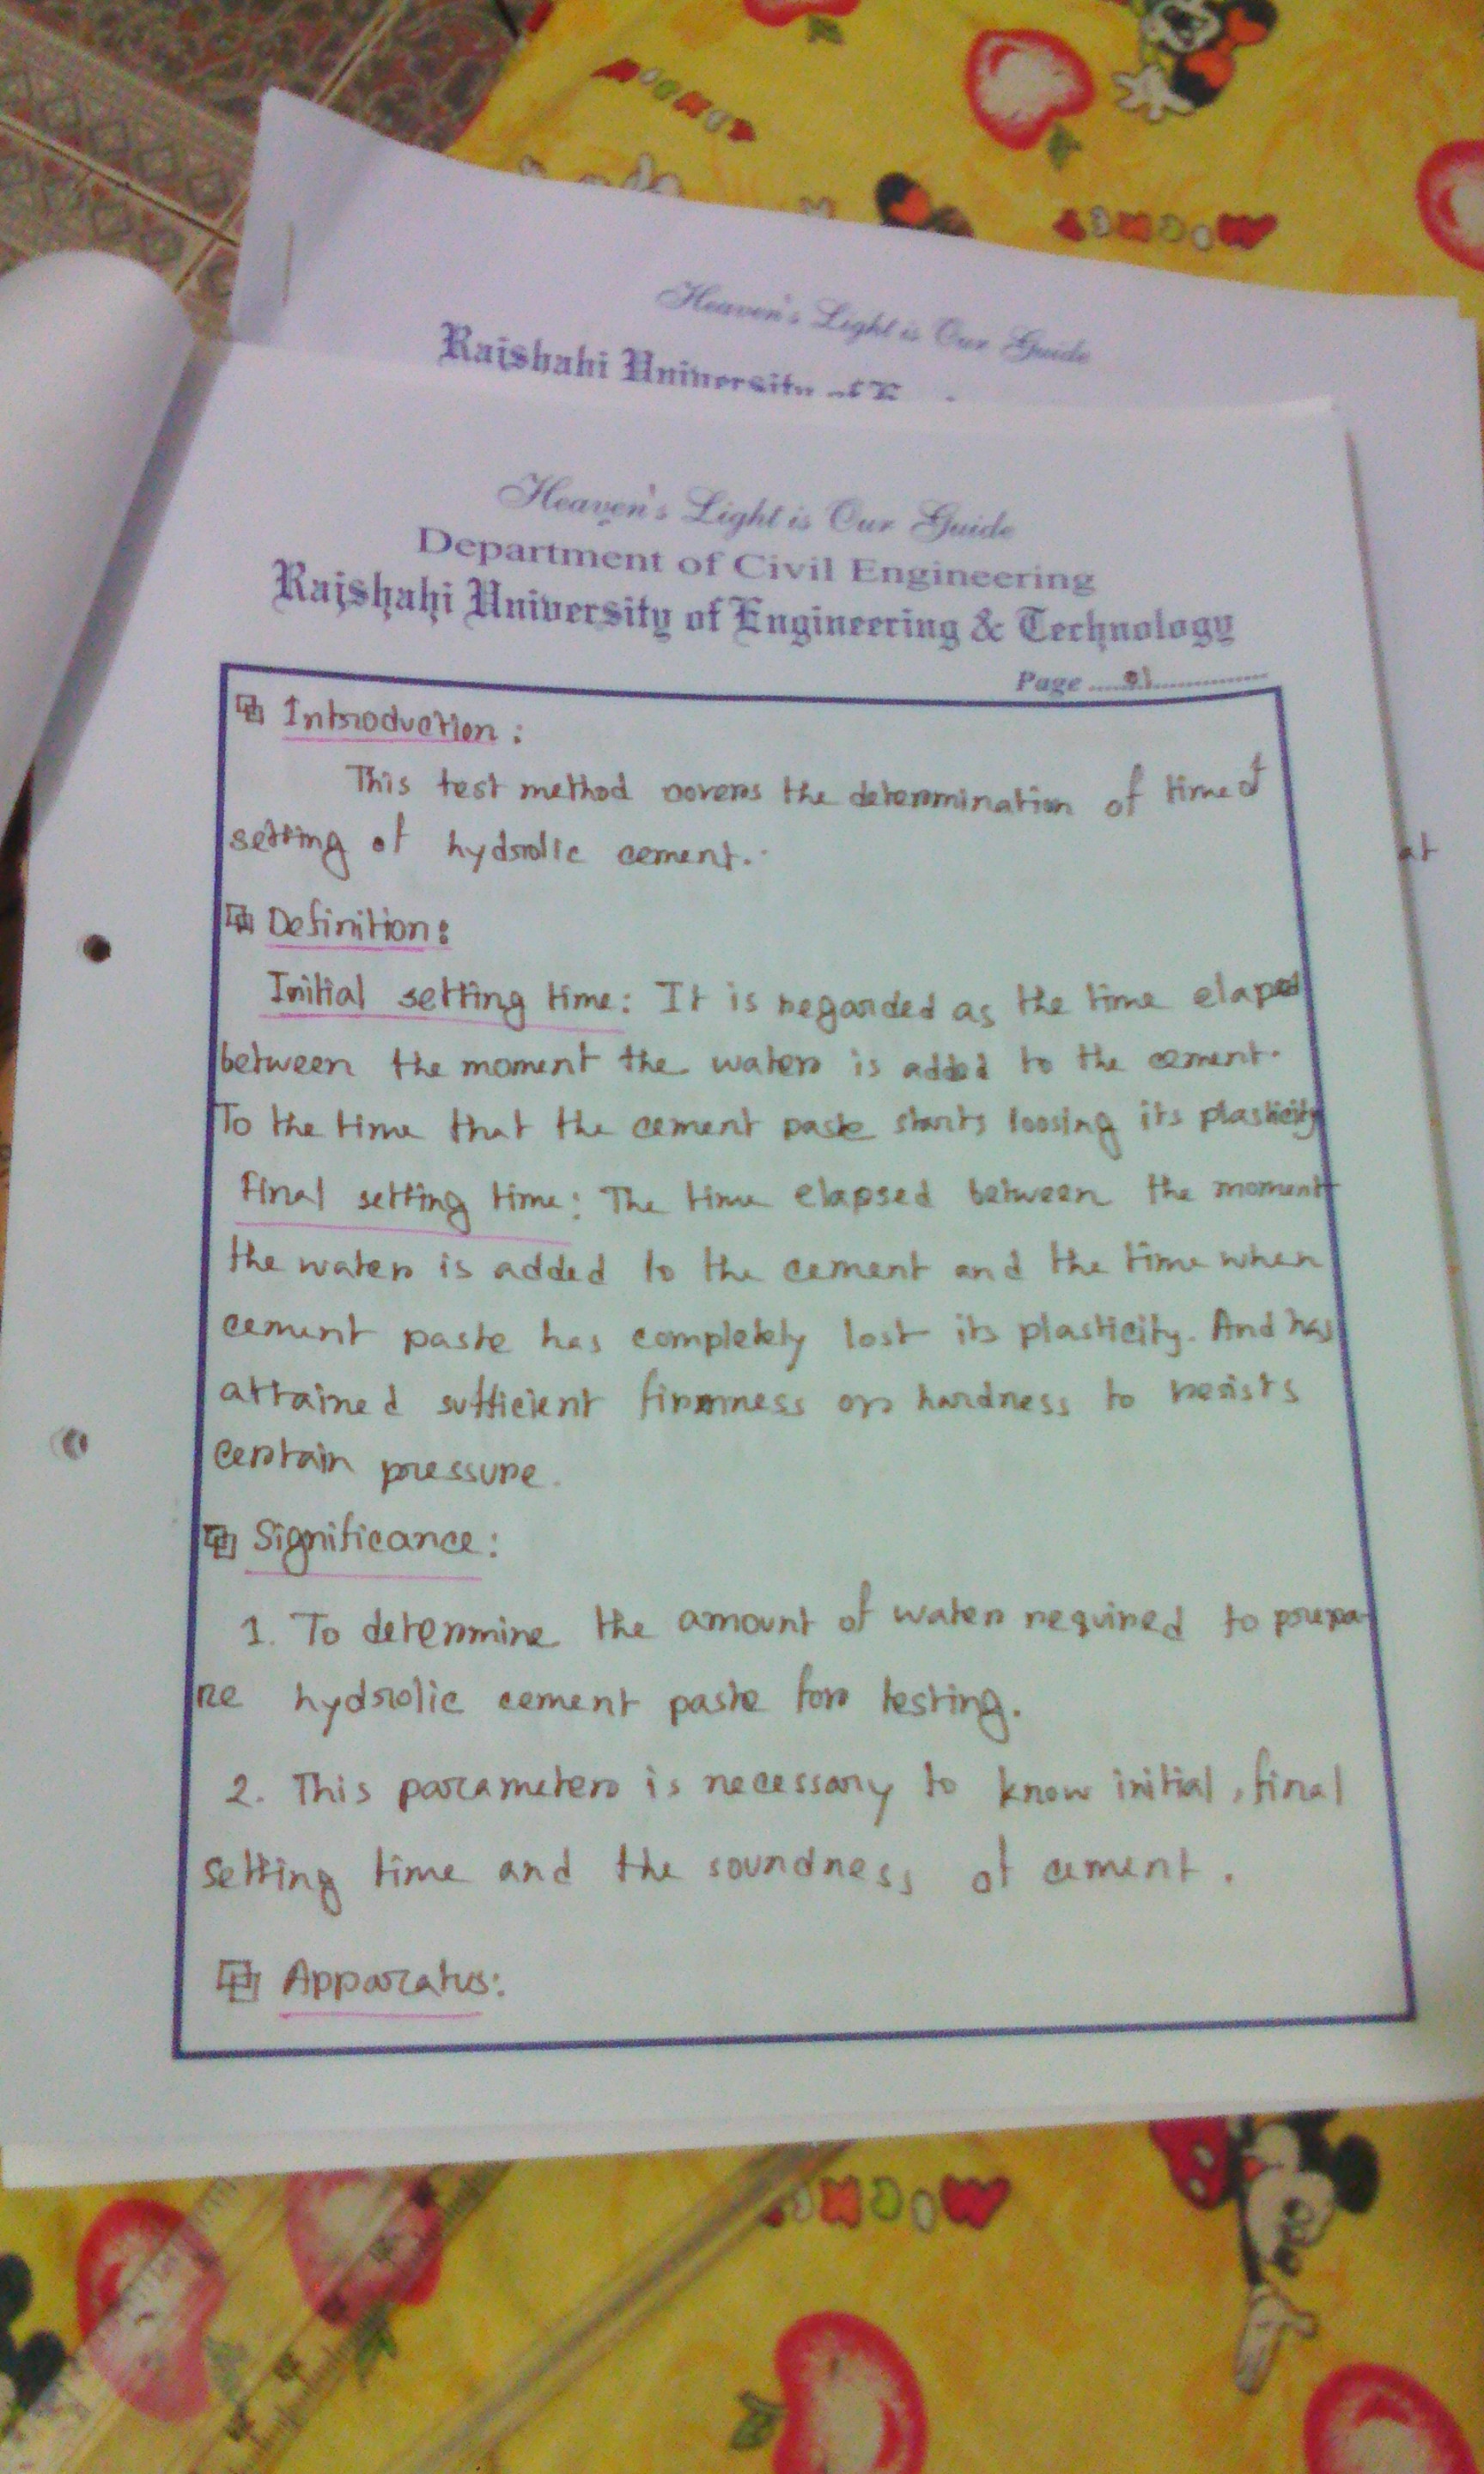 Heaven's Light is Our Guide
Rajshahi University of
Heaven's Light is Our Guide
Department of Civil Engineering
Rajshahi University of Engineering & Technology
Page ..... 01 ..............
Introduction :
This test method covers the determination of time of
setting of hydrolic cement.
Definition :
Initial setting time : It is regarded as the time elaped
between the moment the water is added to the cement.
To the time that the cement paste starts loosing its plasticity
Final setting time : The time elapsed between the moment
the water is added to the cement and the time when
cement paste has completely lost its plasticity. And has
attained sufficient firmness or hardness to resists
certain pressure.
Significance :
1. To determine the amount of water required to prepa-
re hydrolic cement paste for testing.
2. This parameter is necessary to know initial, final
setting time and the soundness of cement.
Apparatus:
at